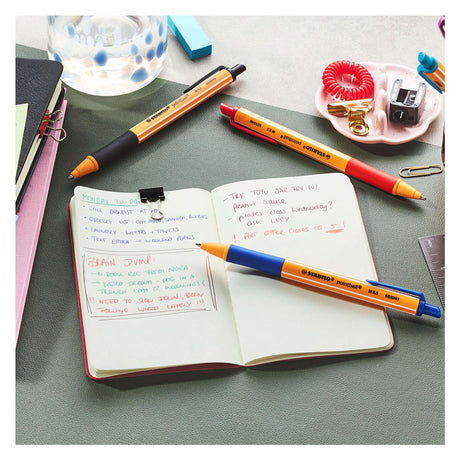 MONDAY TO-DO
• CALL DENTIST AT
• GROCERY LIST:
• LAUNDRY - WHITES + TOWELS
• TEXT EMMA → WEEKEND PLANS
BRAIN DUMP:
→ BOOK REC FROM NORA
→ WEIRD DREAM - DOG IN A
TRENCH COAT
!! NEED TO SLOW DOWN, BEEN
FEELING WIRED LATELY !!!
- TRY TOFU STIR-TRY W/
peanut SAUCE
- pilates class Wednesday?
ask LUCY
! POST OFFICE CLOSES @ 5!
STABILO pointball
STABILO
STABILO
STABILO pointball